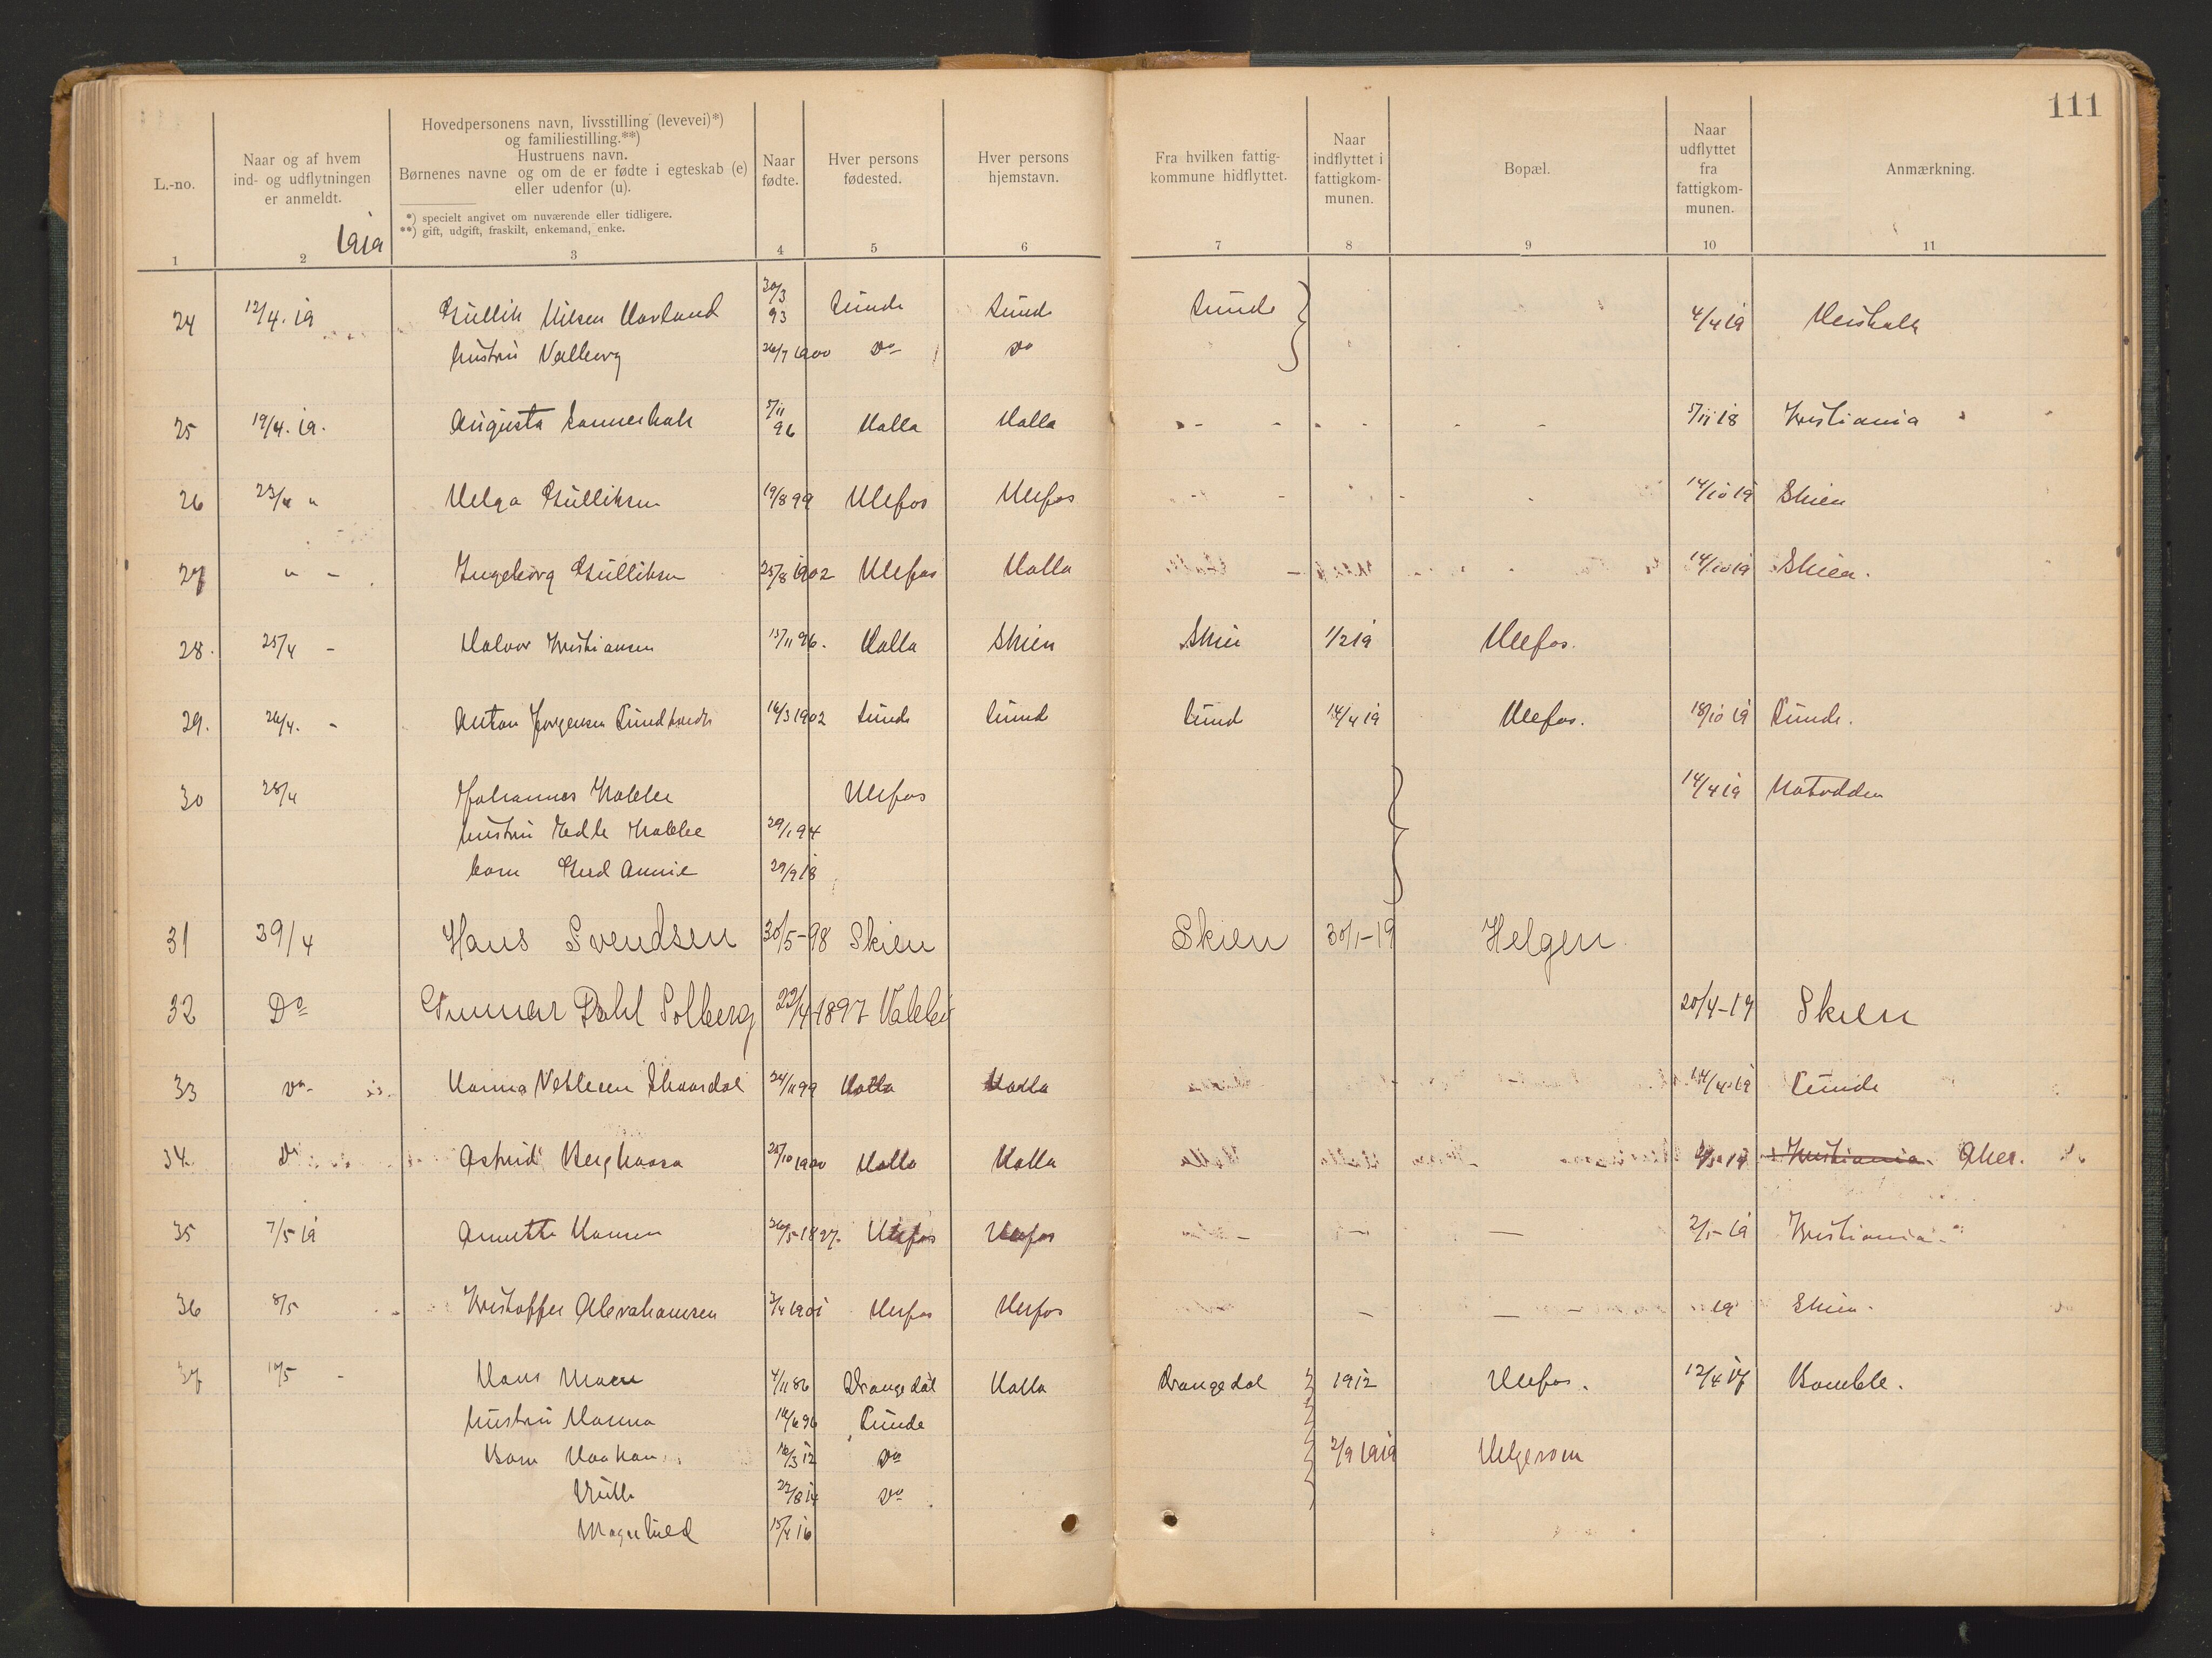 111
L.-no.
Naar og af hvem
ind- og udflytningen
er anmeldt.
1919
Hovedpersonens navn, livsstilling (levevei)*)
og familiestilling.**)
Hustruens navn.
Børnenes navne og om de er fødte i egteskab (e)
eller udenfor (u).
*) specielt angivet om nuværende eller tidligere.
**) gift, udgift, fraskilt, enkemand, enke.
Naar
fødte.
Hver persons
fødested.
Hver persons
hjemstavn.
Fra hvilken fattig-
kommune hidflyttet.
Naar
indflyttet i
fattigkom-
munen.
Bopæl.
Naar
udflyttet
fra
fattigkom-
munen.
Anmærkning.
1 2 3 4 5 6 7 8 9 10 11
24 12/4. 19 Gullik Nilsen 30/3 93 Lunde Lunde Lunde 4/4 19
hustru Valborg 26/7 1900 Do Do
25 19/4. 19. Augusta 5/11 96 Holla Holla 5/11 18 Kristiania
26 23/4 " Helga Gulliksen 19/8 99 Ulefos Ulefos 14/10 19 Skien
27 " - Ingeborg Gulliksen 25/8 1902 Ulefos Holla 14/10 19 Skien.
28. 25/4 - Halvor Kristiansen 15/11 96. Holla Skien Skien 1/2 19 Ulefos.
29. 26/4. - Anton Jørgensen 16/3 1902 Lunde Lunde Lunde 14/4 19 Ulefos. 18/10 19 Lunde.
30 28/4 Johannes Kobbe Ulefos 14/4 19 Notodden
hustru Edle Kobbe 29/1 94
barn Gerd Annie 29/9 18
31 39/4 Hans Svendsen 30/5-98 Skien Skien 30/1-19 Helgen
32 Do Gunnar Dahl Solberg 22/4-1897 20/4-19 Skien
33 Do Hanna 24/11 99 Holla Holla 14/4 19 Lunde
34. Do Astrid 25/10 1900 Holla Holla Kristiania. Aker.
35 7/5 19 Annette Hansen Ulefos Ulefos 2/1-19 Kristiania.
36 8/5 Kristoffer Abrahamsen 2/4 1901 Ulefos Ulefos 19 Skien.
37 10/5 - Hans Moen 4/11 86 Drangedal Holla Drangedal 1912 Ulefos. 12/4 17 Bamble.
hustru Hanna 16/6 96 Lunde
Barn Haakon 10/3 12 Do 2/9 1919
22/8 14 Do
Magnhild 15/4 16